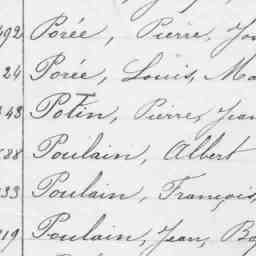 492 Porée, Pierre, Jo
24 Porée, Louis, Ma
343 Potin, Pierre, Jean
588 Poulain, Albert
333 Poulain, François,
219 Poulain, Jean, Ba